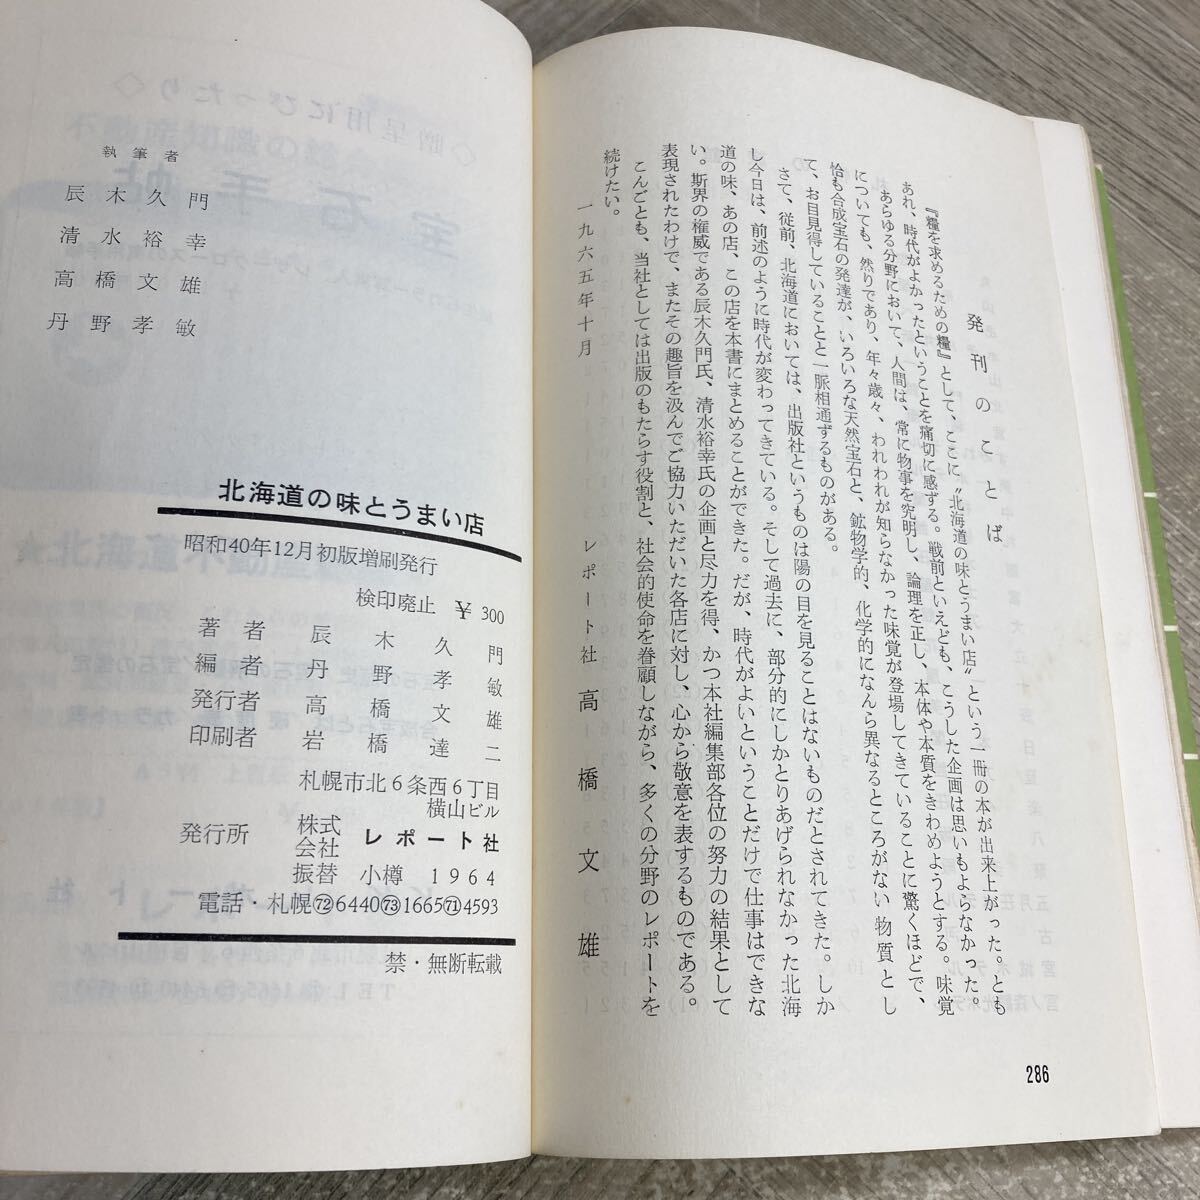 発刊のことば
『糧を求めるための糧』として、ここに〝北海道の味とうまい店〟という一冊の本が出来上がった。とも
あれ、時代がよかったということを痛切に感ずる。戦前といえども、こうした企画は思いもよらなかった。
あらゆる分野において、人間は、常に物事を究明し、論理を正し、本体や本質をきわめようとする。味覚
についても、然りであり、年々歳々、われわれが知らなかった味覚が登場してきていることに驚くほどで、
恰も合成宝石の発達が、いろいろな天然宝石と、鉱物学的、化学的になんら異なるところがない物質とし
て、お目見得していることと一脈相通ずるものがある。
さて、従前、北海道においては、出版社というものは陽の目を見ることはないものだとされてきた。しか
し今日は、前述のように時代が変わってきている。そして過去に、部分的にしかとりあげられなかった北海
道の味、あの店、この店を本書にまとめることができた。だが、時代がよいということだけで仕事はできな
い。斯界の権威である辰木久門氏、清水裕幸氏の企画と尽力を得、かつ本社編集部各位の努力の結果として
表現されたわけで、またその趣旨を汲んでご協力いただいた各店に対し、心から敬意を表するものである。
こんごとも、当社としては出版のもたらす役割と、社会的使命を眷顧しながら、多くの分野のレポートを
続けたい。
一九六五年十月
レポート社 高橋文雄
286
執筆者
辰木久門
清水裕幸
高橋文雄
丹野孝敏
北海道の味とうまい店
昭和40年12月初版増刷発行
検印廃止 ¥300
著者 辰木久門
編者 丹野孝敏
発行者 高橋文雄
印刷者 岩橋達二
札幌市北6条西6丁目
横山ビル
発行所 株式会社 レポート社
振替 小樽 1964
電話・札幌㋆6440㋆1665㋆4593
禁・無断転載